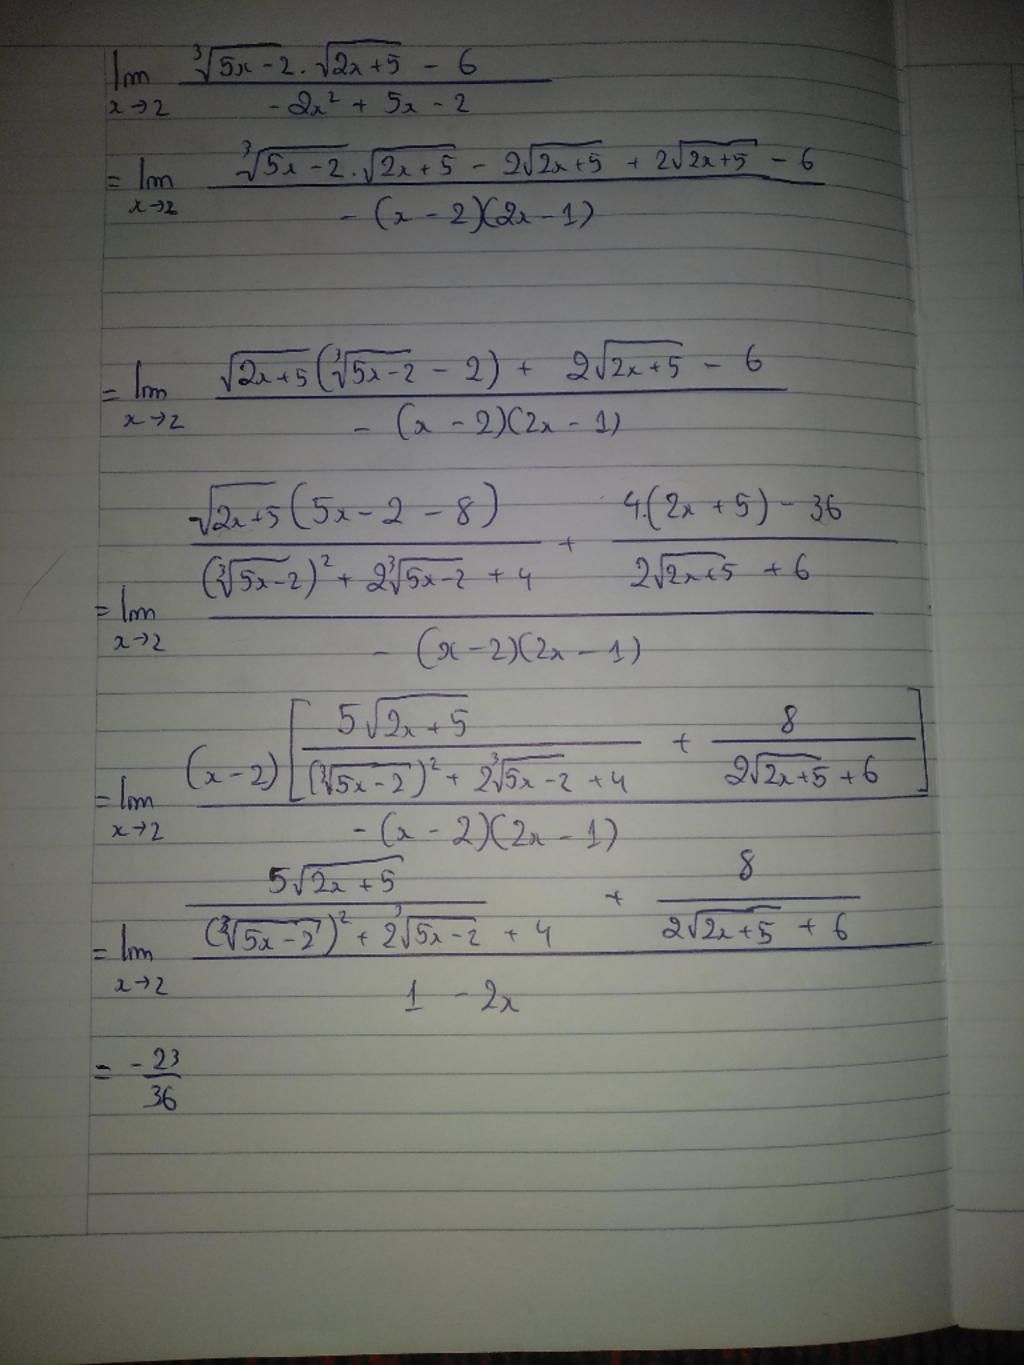 lim x→2 (∛(5x-2) . √(2x+5) - 6) / (-2x² + 5x - 2)
= lim x→2 (∛(5x-2) . √(2x+5) - 2√(2x+5) + 2√(2x+5) - 6) / (-(x-2)(2x-1))
= lim x→2 (√(2x+5) (∛(5x-2) - 2) + 2√(2x+5) - 6) / (-(x-2)(2x-1))
= lim x→2 (√(2x+5) (5x-2-8) / ((∛(5x-2))² + 2∛(5x-2) + 4) + (4.(2x+5) - 36) / (2√(2x+5) + 6)) / (-(x-2)(2x-1))
= lim x→2 (x-2) [5√(2x+5) / ((∛(5x-2))² + 2∛(5x-2) + 4) + 8 / (2√(2x+5) + 6)] / (-(x-2)(2x-1))
= lim x→2 (5√(2x+5) / ((∛(5x-2))² + 2∛(5x-2) + 4) + 8 / (2√(2x+5) + 6)) / (1 - 2x)
= -23/36